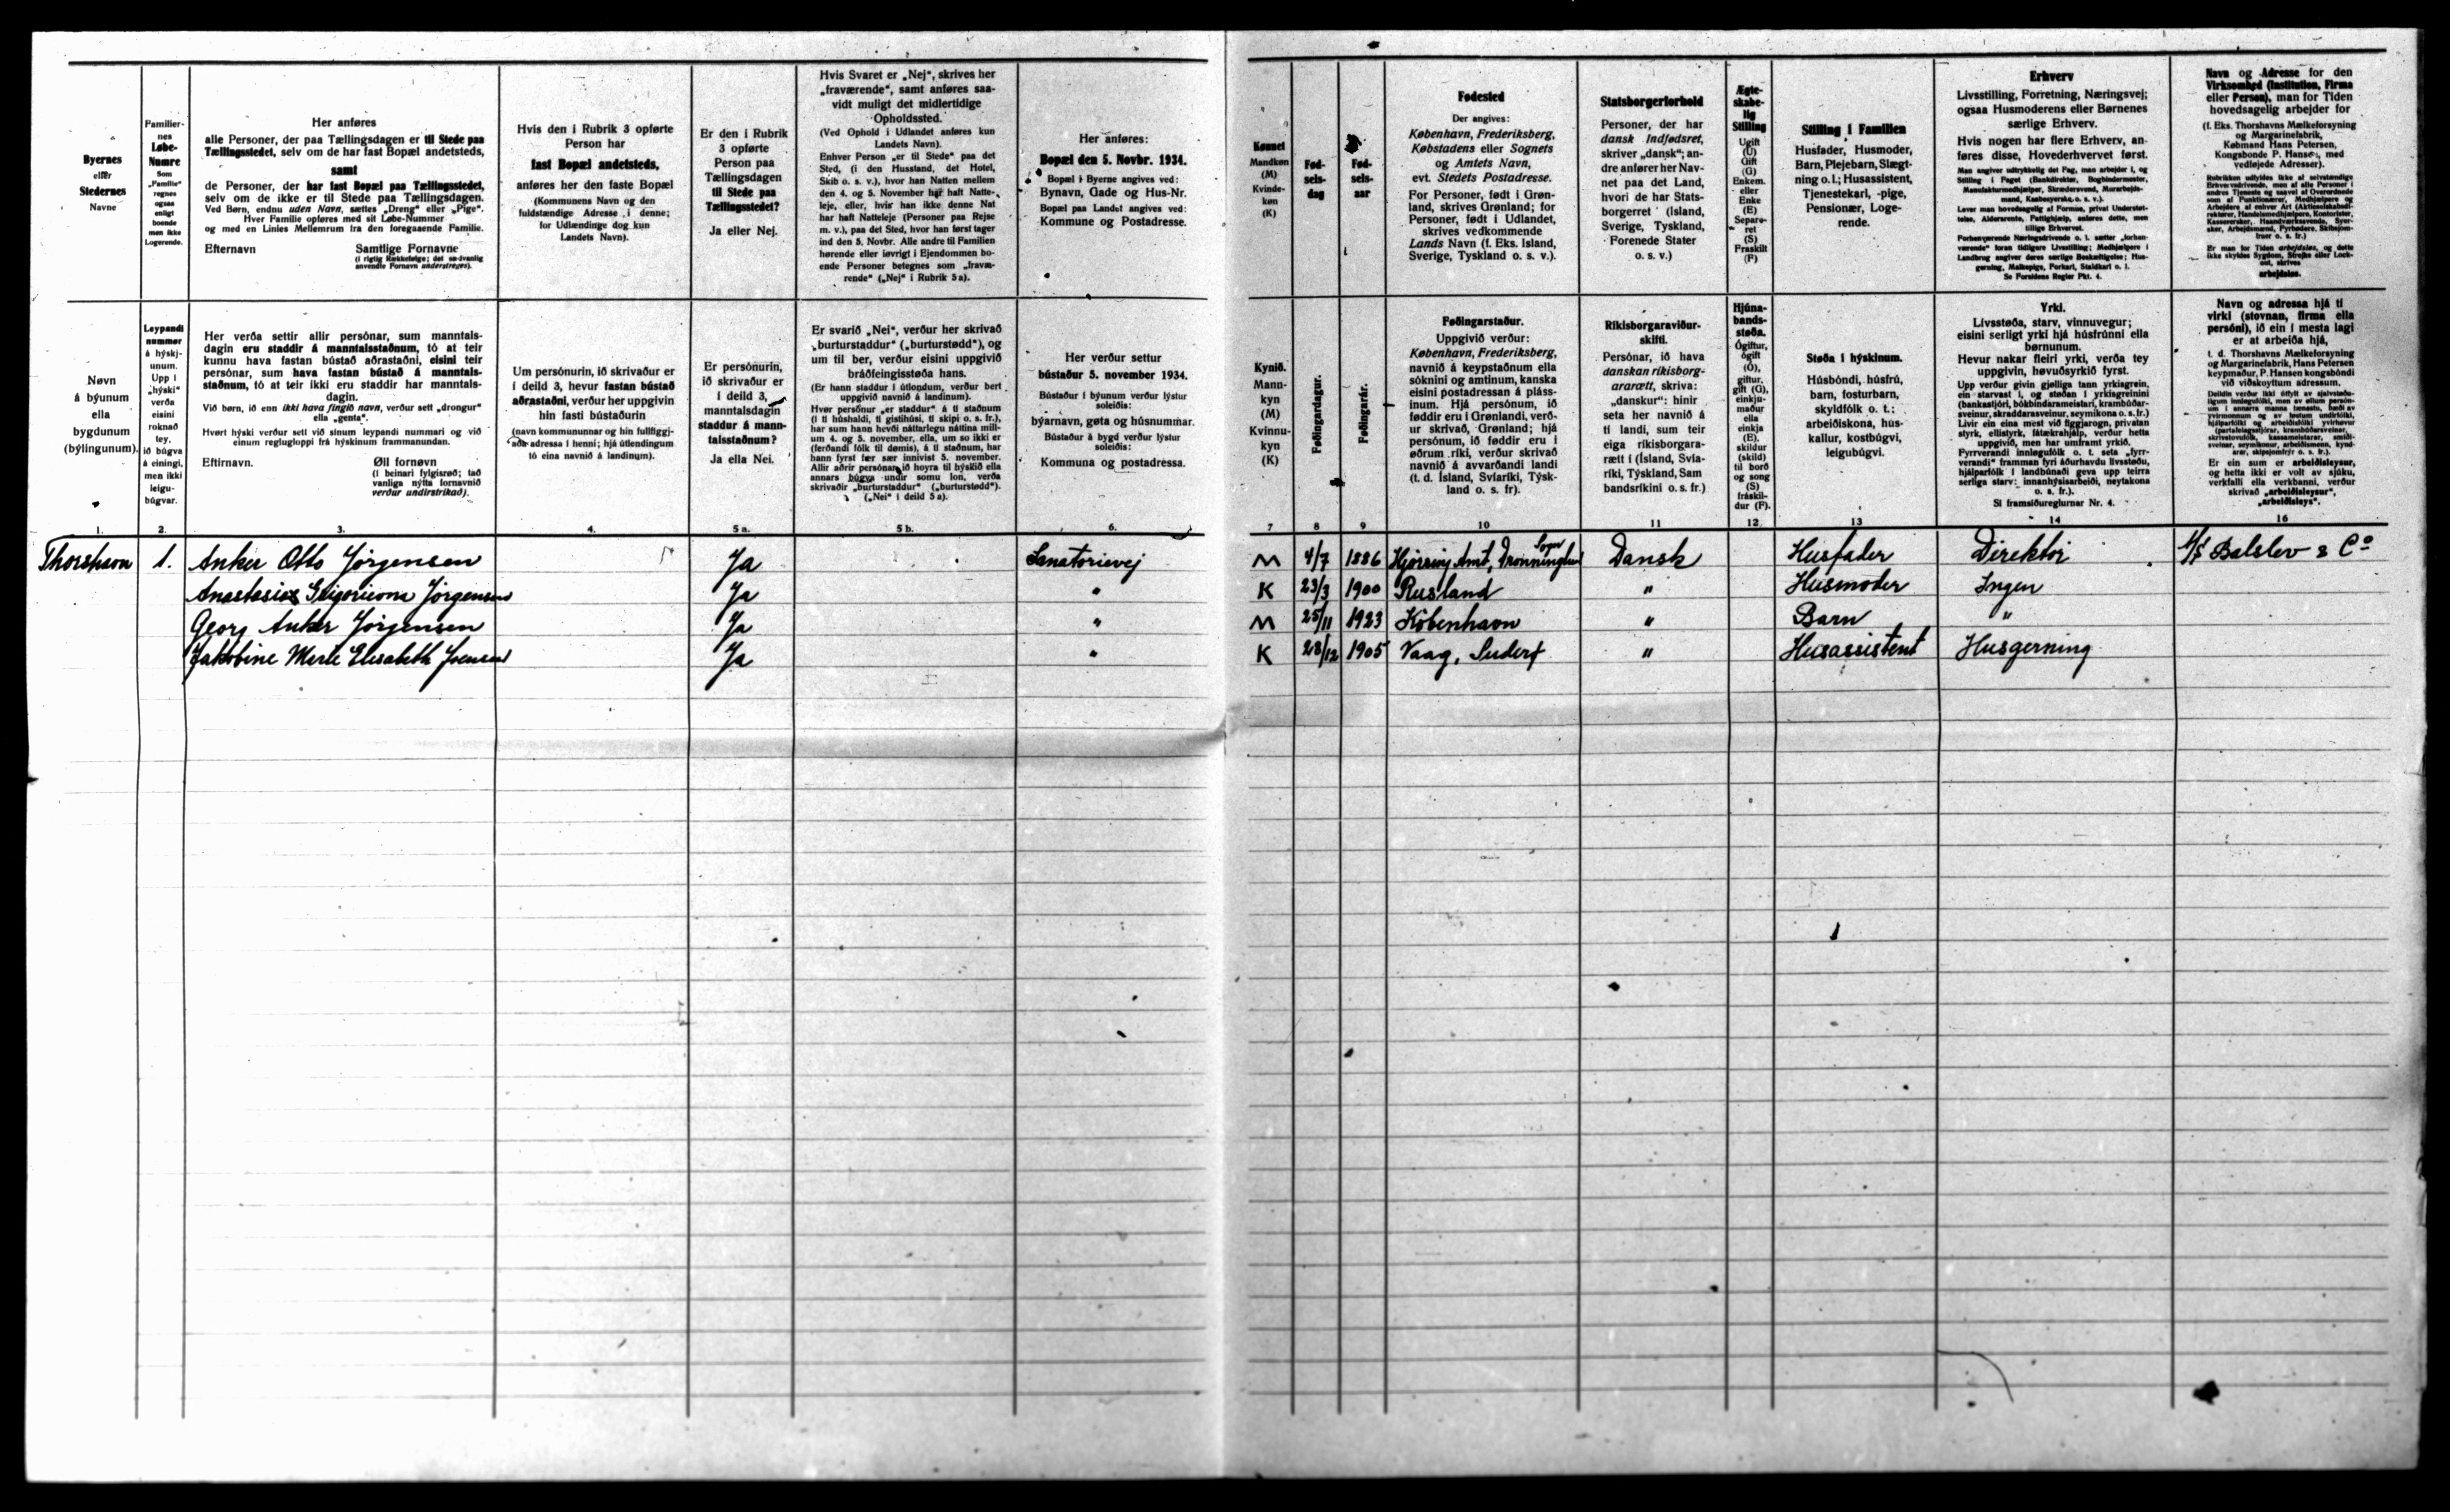 Byernes
eller
Stedernes
Navne
Familier-
nes
Løbe-
Numre
Som
„Familie“
regnes
ogsaa
enligt
boende
men ikke
Logerende.
Her anføres
alle Personer, der paa Tællingsdagen er til Stede paa
Tællingsstedet, selv om de har fast Bopæl andetsteds,
samt
de Personer, der har fast Bopæl paa Tællingsstedet,
selv om de ikke er til Stede paa Tællingsdagen.
Ved Børn, endnu uden Navn, sættes „Dreng“ eller „Pige“.
Hver Familie opføres med sit Løbe-Nummer
og med en Linies Mellemrum fra den foregaaende Familie.
Efternavn Samtlige Fornavne
(i rigtig Rækkefølge; det sædvanlig
anvendte Fornavn understreges).
Hvis den i Rubrik 3 opførte
Person har
fast Bopæl andetsteds,
anføres her den faste Bopæl
(Kommunens Navn og den
fuldstændige Adresse i denne;
for Udlændinge dog kun
Landets Navn).
Er den i Rubrik
3 opførte
Person paa
Tællingsdagen
til Stede paa
Tællingsstedet?
Ja eller Nej.
Hvis Svaret er „Nej“, skrives her
„fraværende“, samt anføres saa-
vidt muligt det midlertidige
Opholdssted.
(Ved Ophold i Udlandet anføres kun
Landets Navn).
Enhver Person „er til Stede“ paa det
Sted, (i den Husstand, det Hotel,
Skib o. s. v.), hvor han Natten mellem
den 4. og 5. November har haft Natte-
leje, eller, hvis han ikke denne Nat
har haft Natteleje (Personer paa Rejse
m. v.), paa det Sted, hvor han først tager
ind den 5. Novbr. Alle andre til Familien
hørende eller iøvrigt i Ejendommen bo-
ende Personer betegnes som „fravæ-
rende“ („Nej“ i Rubrik 5 a).
Her anføres:
Bopæl den 5. Novbr. 1934.
Bopæl i Byerne angives ved:
Bynavn, Gade og Hus-Nr.
Bopæl paa Landet angives ved:
Kommune og Postadresse.
Kønnet
Mandkøn
(M)
Kvinde-
køn
(K)
Fød-
sels-
dag
Fød-
sels-
aar
Fødested
Der angives:
København, Frederiksberg,
Købstadens eller Sognets
og Amtets Navn,
evt. Stedets Postadresse.
For Personer, født i Grøn-
land, skrives Grønland; for
Personer, født i Udlandet,
skrives vedkommende
Lands Navn (f. Eks. Island,
Sverige, Tyskland o. s. v.).
Statsborgerforhold
Personer, der har
dansk Indfødsret,
skriver „dansk“; an-
dre anfører her Nav-
net paa det Land,
hvori de har Stats-
borgerret (Island,
Sverige, Tyskland,
Forenede Stater
o. s. v.)
Ægte-
skabe-
lig
Stilling
Ugift
(U)
Gift
(G)
Enkem.
eller
Enke
(E)
Separe-
ret
(S)
Fraskilt
(F)
Stilling i Familien
Husfader, Husmoder,
Barn, Plejebarn, Slægt-
ning o. l.; Husassistent,
Tjenestekarl, -pige,
Pensionær, Loge-
rende.
Erhverv
Livsstilling, Forretning, Næringsvej;
ogsaa Husmoderens eller Børnenes
særlige Erhverv.
Hvis nogen har flere Erhverv, an-
føres disse, Hovederhvervet først.
Man angiver udtrykkelig det Fag, man arbejder i, og
Stilling i Faget (Bankdirektør, Bogbindermester,
Manufakturmedhjælper, Skrædersvend, Murarbejds-
mand, Kasbesyerske, o. s. v.).
Lever man hovedsagelig af Formue, privat Understøt-
telse, Aldersrente, Fattighjælp, anføres dette, men
tillige Erhvervet.
Forhenværende Næringsdrivende o. l. sætter „forhen-
værende“ foran tidligere Livsstilling; Medhjælpere i
Landbrug angiver deres særlige Beskæftigelse; Hus-
gerning, Malkepige, Forkarl, Staldkarl o. l.
Se Forsidens Regler Pkt. 4.
Navn og Adresse for den
Virksomhed (Institution, Firma
eller Person), man for Tiden
hovedsagelig arbejder for
(f. Eks. Thorshavns Mælkeforsyning
og Margarinefabrik,
Købmand Hans Petersen,
Kongsbonde P. Hansen, med
vedføjede Adresser).
Rubrikken udfyldes ikke af selvstændige
Erhvervsdrivende, men af alle Personer i
andres Tjeneste og saavel af Overordnede
som af Funktionærer, Medhjælpere og
Arbejdere af enhver Art
Er man for Tiden arbejdsløs, og dette
ikke skyldes Sygdom, Strejke eller Lock-
out, skrives
arbejdsløs.
Nøvn
á býunum
ella
bygdunum
(býlingunum).
Leypandi
nummør
á hýskj-
unum.
Upp í
„hýski“
verða
eisini
roknað
tey,
ið búgva
á einingi,
men ikki
leigu-
búgvar.
Her verða settir allir persónar, sum manntals-
dagin eru staddir á manntalsstaðnum, tó at teir
kunnu hava fastan bústað aðrastaðni, eisini teir
persónar, sum hava fastan bústað á manntals-
staðnum, tó at teir ikki eru staddir har manntals-
dagin.
Við børn, ið enn ikki hava fingið navn, verður sett „drongur“
ella „genta“.
Hvørt hýski verður sett við sínum leypandi nummari og við
einum reglugloppi frá hýskinum frammanundan.
Eftirnavn. Øll fornøvn
(í beinari fylgisrøð; tað
vanliga nýtta fornavnið
verður undirstrikað).
Um persónurin, ið skrivaður er
í deild 3, hevur fastan bústað
aðrastaðni, verður her uppgivin
hin fasti bústaðurin
(navn kommununnar og hin fullfíggj-
aða adressa í henni; hjá útlendingum
tó eina navnið á landinum).
Er persónurin,
ið skrivaður er
í deild 3,
manntalsdagin
staddur á mann-
talsstaðnum?
Ja ella Nei.
Er svarið „Nei“, verður her skrivað
„burturstaddur“ („burturstødd“), og
um til ber, verður eisini uppgivið
bráðfeingisstøða hans.
(Er hann staddur í útlondum, verður bert
uppgivið navnið á landinum).
Hvør persónur „er staddur“ á tí staðnum
(í tí húshaldi, tí gistihúsi, tí skipi o. s. fr.),
har sum hann hevði náttarlegu náttina mill-
um 4. og 5. november, ella, um so ikki er
(ferðandi fólk til dømis), á tí staðnum, har
hann fyrst fær sær innivist 5. november.
Allir aðrir persónar, ið hoyra til hýskið ella
annars búgva undir somu lon, verða
skrivaðir „burturstaddur“ („burturstødd“).
(„Nei“ í deild 5 a).
Her verður settur
bústaður 5. november 1934.
Bústaður í býunum verður lýstur
soleiðis:
býarnavn, gøta og húsnummar.
Bústaður á bygd verður lýstur
soleiðis:
Kommuna og postadressa.
Kynið.
Mann-
kyn
(M)
Kvinnu-
kyn
(K)
Føðingardagur.
Føðingarár.
Føðingarstaður.
Uppgivið verður:
København, Frederiksberg,
navnið á keypstaðnum ella
sóknini og amtinum, kanska
eisini postadressan á pláss-
inum. Hjá persónum, ið
føddir eru í Grønlandi, verð-
ur skrivað, Grønland; hjá
persónum, ið føddir eru í
øðrum ríki, verður skrivað
navnið á avvarðandi landi
(t. d. Ísland, Svíaríki, Týsk-
land o. s. fr).
Ríkisborgaraviður-
skifti.
Persónar, ið hava
danskan ríkisborg-
ararætt, skriva:
„danskur“: hinir
seta her navnið á
tí landi, sum teir
eiga ríkisborgara-
rætt í (Ísland, Svía-
ríki, Týskland, Sam
bandsríkini o. s. fr.)
Hjúna-
bands-
støða.
Ógiftur,
ógift
(Ó),
giftur,
gift (G),
einkju-
maður
ella
einkja
(E),
skildur
(skild)
til borð
og song
(S)
fráskil-
dur (F).
Støða í hýskinum.
Húsbóndi, húsfrú,
barn, fosturbarn,
skyldfólk o. t.;
arbeiðiskona, hús-
kallur, kostbúgvi,
leigubúgvi.
Yrki.
Livsstøða, starv, vinnuvegur;
eisini serligt yrki hjá húsfrúnni ella
børnunum.
Hevur nakar fleiri yrki, verða tey
uppgivin, høvuðsyrkið fyrst.
Upp verður givin gjølliga tann yrkisgrein,
ein starvast í, og støðan í yrkisgreinini
(bankastjóri, bókbindarameistari, krambúðar-
sveinur, skraddarasveinur, seymikona o. s. fr.)
Livir ein eina mest við fíggjarogn, privatan
styrk, ellistyrk, fátækrahjálp, verður hetta
uppgivið, men har umframt yrkið.
Fyrrverandi innløgufólk o. t. seta „fyrr-
verandi“ framman fyri áðurhavdu livsstøðu,
hjálparfólk í landbúnaði geva upp teirra
serliga starv: innanhýsisarbeiði, neytakona
o. s. fr.).
Sí framsíðureglurnar Nr. 4.
Navn og adressa hjá tí
virki (stovnan, firma ella
persóni), ið ein í mesta lagi
er at arbeiða hjá,
t. d. Thorshavns Mælkeforsyning
og Margarinefabrik, Hans Petersen
keypmaður, P. Hansen kongsbóndi
við viðskoyttum adressum.
Er ein sum er arbeiðsleysur,
og hetta ikki er volt av sjúku,
verkfalli ella verkbanni, verður
skrivað „arbeiðsleysur“,
„arbeiðsleys“.
1. 2. 3. 4. 5 a. 5 b. 6. 7 8 9 10 11 12 13 14 16
Thorshavn 1. Anker Otto Jørgensen Ja Sanatorievej M 4/7 1886 Hjørring Amt, Dronninglund Sogn Dansk Husfader Direktør A/S Balslev & Co
Anastasia Grigorievna Jørgensen Ja " K 23/3 1900 Rusland " Husmoder Ingen
Georg Anker Jørgensen Ja " M 25/11 1923 København " Barn "
Jakobine Merle Elisabeth Joensen Ja " K 28/12 1905 Vaag, Suderø " Husassistent Husgerning